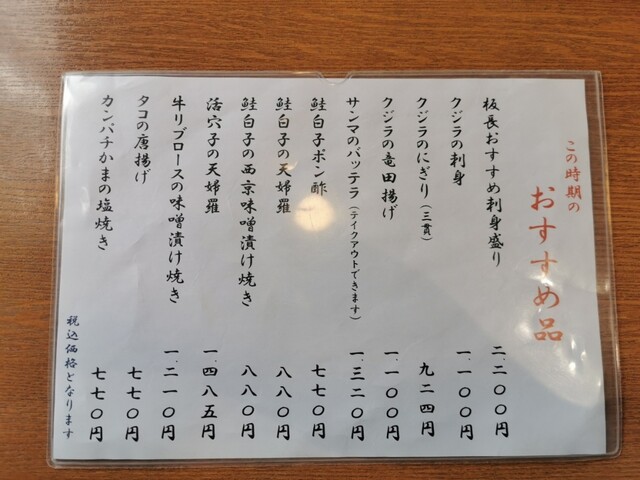 この時期の
おすすめ品
板長おすすめ刺身盛り 二.二〇〇円
クジラの刺身 一.一〇〇円
クジラのにぎり（三貫） 九二四円
クジラの竜田揚げ 一.一〇〇円
サンマのバッテラ（テイクアウトできます） 一.三二〇円
鮭白子ポン酢 七七〇円
鮭白子の天婦羅 八八〇円
鮭白子の西京味噌漬け焼き 八八〇円
活穴子の天婦羅 一.四八五円
牛リブロースの味噌漬け焼き 一.二一〇円
タコの唐揚げ 七七〇円
カンパチかまの塩焼き 七七〇円
税込価格となります